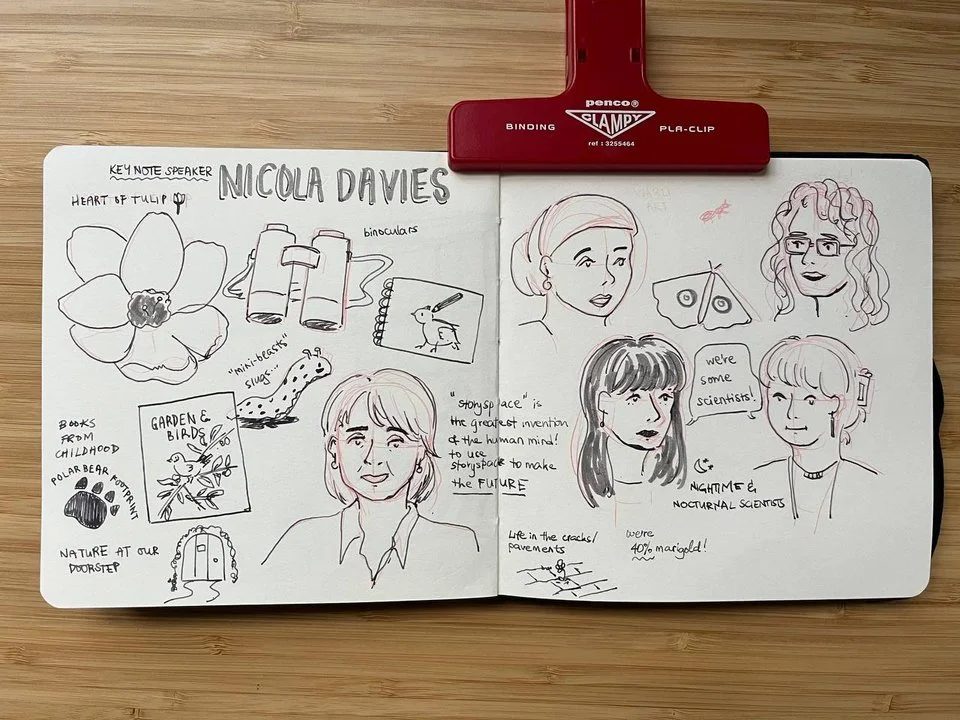 penco®
CLAMPY
BINDING
PLA-CLIP
ref : 3255464
KEYNOTE SPEAKER
NICOLA DAVIES
HEART OF TULIP
binoculars
"mini-beasts"
slugs...
BOOKS
FROM
CHILDHOOD
GARDEN &
BIRDS
POLAR BEAR FOOTPRINT
NATURE AT OUR
DOORSTEP
"storyspace" is
the greatest invention
of the human mind!
to use
storyspace to make
the FUTURE
we're
some
scientists!
NIGHTIME &
NOCTURNAL SCIENTISTS
Life in the cracks/
pavements
we're
40% marigold!